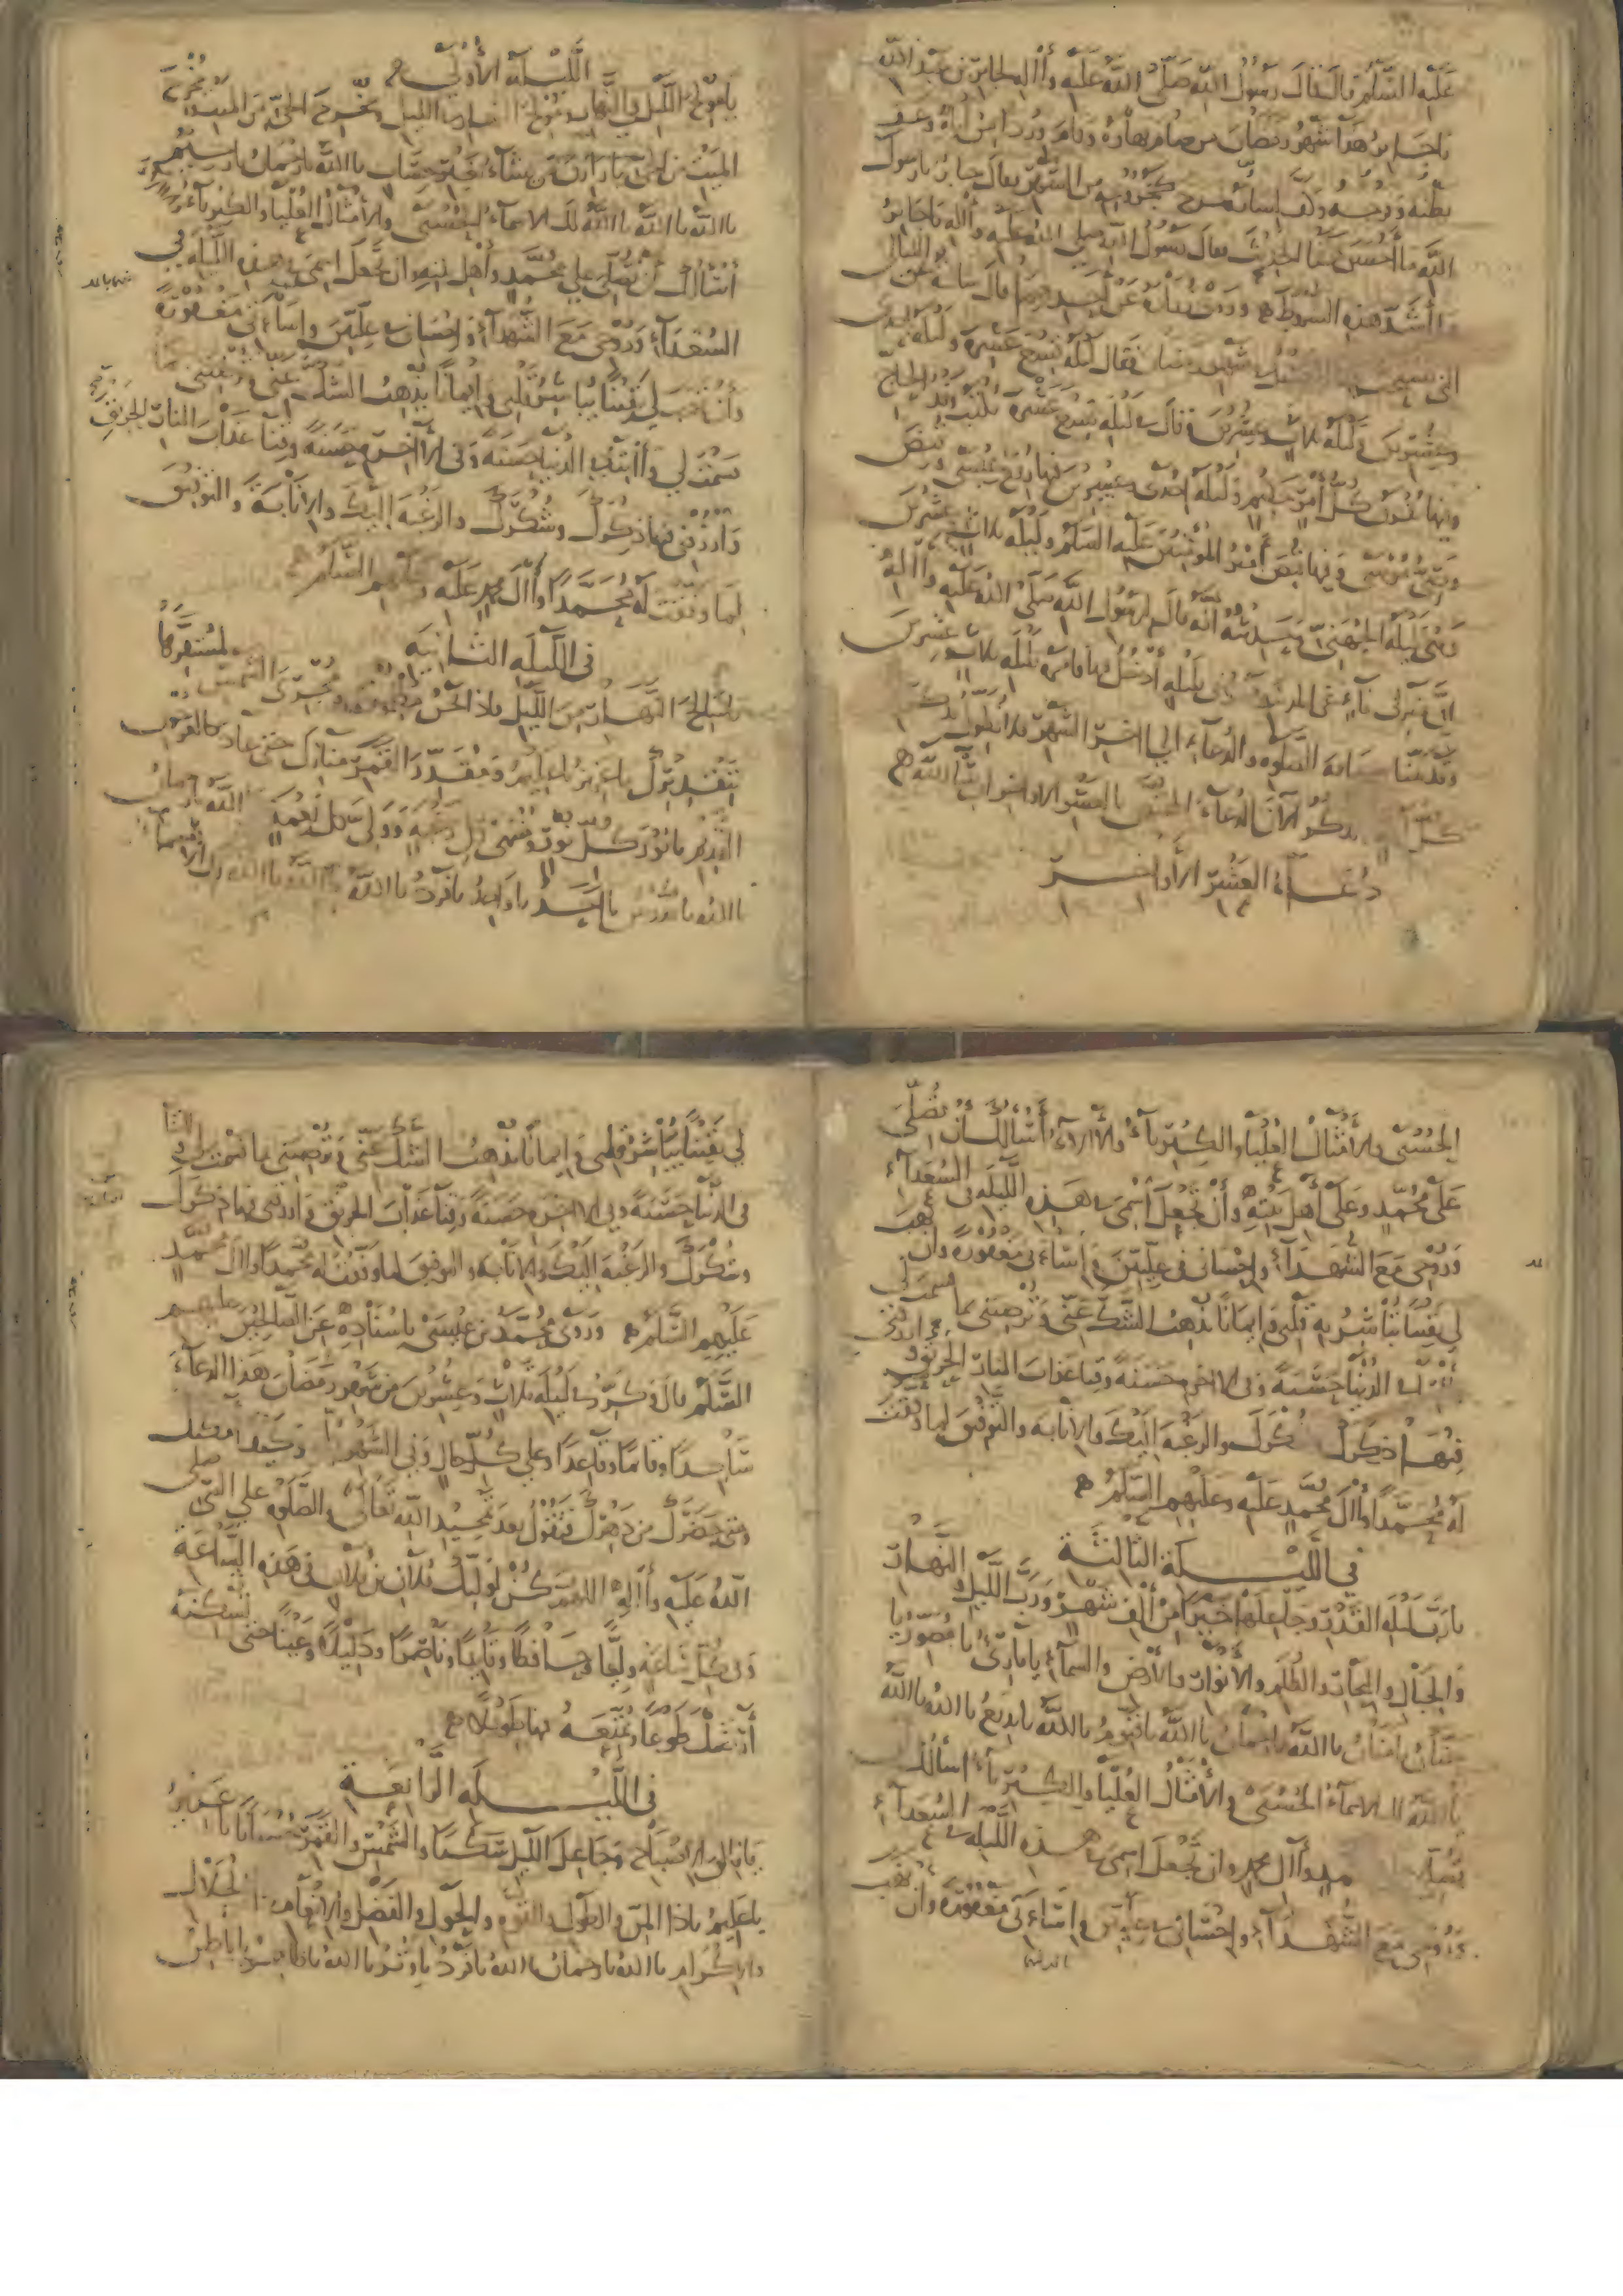 عليه السلم قال قال رسول الله صلى الله عليه وآله لجابر بن عبد الله
يا جابر هذا شهر رمضان من صام نهاره وقام وردا من ليله وعف
بطنه وفرجه وكف لسانه خرج كخروجه من الشهر فقال جابر يا رسول
الله ما أحسن هذا الحديث فقال رسول الله صلى الله عليه وآله يا جابر
ما أشد هذه الشروط وروى عن قال سالته عن الليالي
التي شهر رمضان فقال ليلة تسع عشرة وليلة احدى
وعشرين وليلة ثلاث وعشرين وقال ليلة تسع عشرة يكتب الحاج
وفيها يفرق كل أمر حكيم وليلة احدى وعشرين فيها رفع عيسى
وصي موسى وفيها قبض أمير المؤمنين عليه السلم وليلة ثلاث وعشرين
وهي ليلة الجهني وحديثه أنه قال لرسول الله صلى الله عليه وآله
إن منزلي نائي عن المدينة بليلة أدخل فيها فامره بليلة ثلاث وعشرين
وقدمنا الصلوة والدعاء الى اخر الشهر فلا نطول بذكر
كل نذكر الآن الدعاء المختص بالعشر الاواخر ان شاء الله
دعاء العشر الاواخر
الليلة الأولى
يا مولج الليل في النهار ومولج النهار في الليل ومخرج الحي من الميت ومخرج
الميت من الحي يا رازق من يشاء بغير حساب يا الله يا رحمان يا رحيم
يا الله يا الله يا الله لك الاسماء الحسنى والأمثال العليا والكبرياء
أسألك أن تصلي على محمد وأهل بيته وان تجعل اسمي في هذه الليلة في
السعداء وروحي مع الشهداء واحساني في عليين واساءتي مغفورة
وأن تهب لي يقينا تباشر به قلبي وايمانا يذهب الشك عني وترضيني بما
قسمت لي وآتنا في الدنيا حسنة وفي الآخرة حسنة وقنا عذاب النار الحريق
وارزقني فيها ذكرك وشكرك والرغبة اليك والانابة والتوفيق
لما وفقت له محمدا وآل محمد عليه وعليهم السلم
في الليلة الثانية
يا سالخ النهار من الليل فاذا نحن مظلمون ومجري الشمس لمستقرها
بتقديرك يا عزيز يا عليم ومقدر القمر منازل حتى عاد كالعرجون
القديم يا نور كل نور ومنتهى كل رغبة وولي كل نعمة يا الله يا رحمان
يا الله يا قدوس يا أحد يا واحد يا فرد يا الله يا الله يا الله لك الاسماء
الحسنى والأمثال العليا والكبرياء والآلاء أسألك أن تصلي
على محمد وعلى أهل بيته وأن تجعل اسمي في هذه الليلة في السعداء
وروحي مع الشهداء واحساني في عليين واساءتي مغفورة وان تهب
لي يقينا تباشر به قلبي وايمانا يذهب الشك عني وترضيني بما قسمت لي
وآتنا في الدنيا حسنة وفي الاخرة حسنة وقنا عذاب النار الحريق وارزقني
فيها ذكرك وشكرك والرغبة اليك والانابة والتوفيق لما وفقت
له محمدا وآل محمد عليه وعليهم السلم
في الليلة الثالثة
يا رب ليلة القدر وجاعلها خيرا من ألف شهر ورب الليل والنهار
والجبال والبحار والظلم والانوار والأرض والسماء يا بارئ يا مصور يا
حنان يا منان يا الله يا رحمان يا الله يا قيوم يا الله يا بديع يا الله يا الله
يا الله لك الاسماء الحسنى والأمثال العليا والكبرياء اسألك
محمد وآل محمد وان تجعل اسمي في هذه الليلة في السعداء
وروحي مع الشهداء واحساني في عليين واساءتي مغفورة وأن تهب
لي يقينا تباشر به قلبي وايمانا يذهب الشك عني وترضيني بما قسمت لي وآتنا
في الدنيا حسنة وفي الاخرة حسنة وقنا عذاب الحريق وارزقني فيها ذكرك
وشكرك والرغبة اليك والانابة والتوفيق لما وفقت له محمدا وآل محمد
عليهم السلم وروى محمد بن عيسى باسناده عن الصالحين عليهم
السلم قال تكرر في ليلة ثلاث وعشرين من شهر رمضان هذا الدعاء
ساجدا وقائما وقاعدا وعلى كل حال وفي الشهر وكيف امكنك
ومتى حضرك من دهرك فتقول بعد تمجيد الله تعالى والصلوة على النبي صلى
الله عليه وآله اللهم كن لوليك فلان بن فلان في هذه الساعة
وفي كل ساعة وليا وحافظا وقائدا وناصرا ودليلا وعينا حتى تسكنه
أرضك طوعا وتمتعه فيها طويلا
في الليلة الرابعة
يا فالق الاصباح وجاعل الليل سكنا والشمس والقمر حسبانا يا عزيز
يا عليم يا ذا المن والطول والقوة والحول والفضل والانعام والجلال
والاكرام يا الله يا رحمان يا الله يا فرد يا وتر يا الله يا ظاهر يا باطن